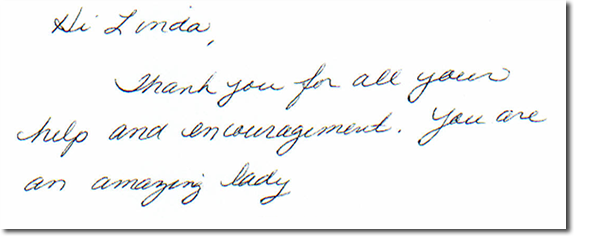 Hi Linda,
Thank you for all your
help and encouragement. You are
an amazing lady